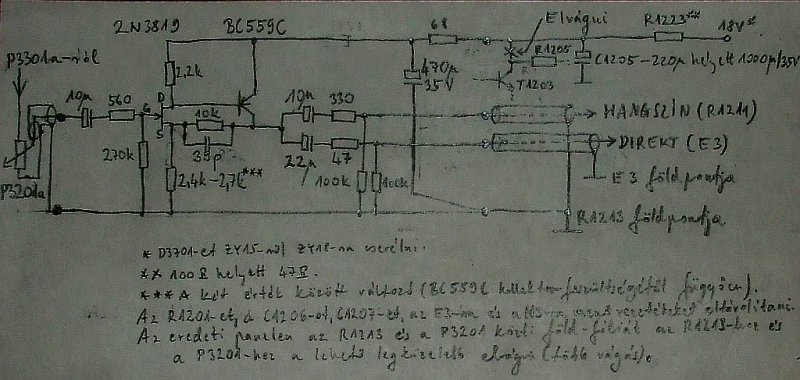 2N3819 BC559C
Elvágni R1223** 18V*
P3301a-ról 68 R1205
C1205-220µ helyett 1000µ/35V
2,2k 470µ 35V T1203
10µ 560 G D S 10k 10µ 330 HANGSZÍN (R1211)
39p 22µ 47 DIREKT (E3)
270k
P3201a 2,4k-2,7k*** 100k 100k E3 földpontja
R1213 földpontja
* D3701-et ZY15-ről ZY18-ra cserélni.
** 100Ω helyett 47Ω.
*** A két érték között változó (BC559C kollektor-feszültségétől függően).
Az R1201-et, a C1206-ot, C1207-et, az E3-ra és a menő vezetékeket eltávolítani.
Az eredeti panelen az R1213 és a P3201 közti föld-fóliát az R1213-hoz és
a P3201-hez a lehető legközelebb elvágni (több vágás).